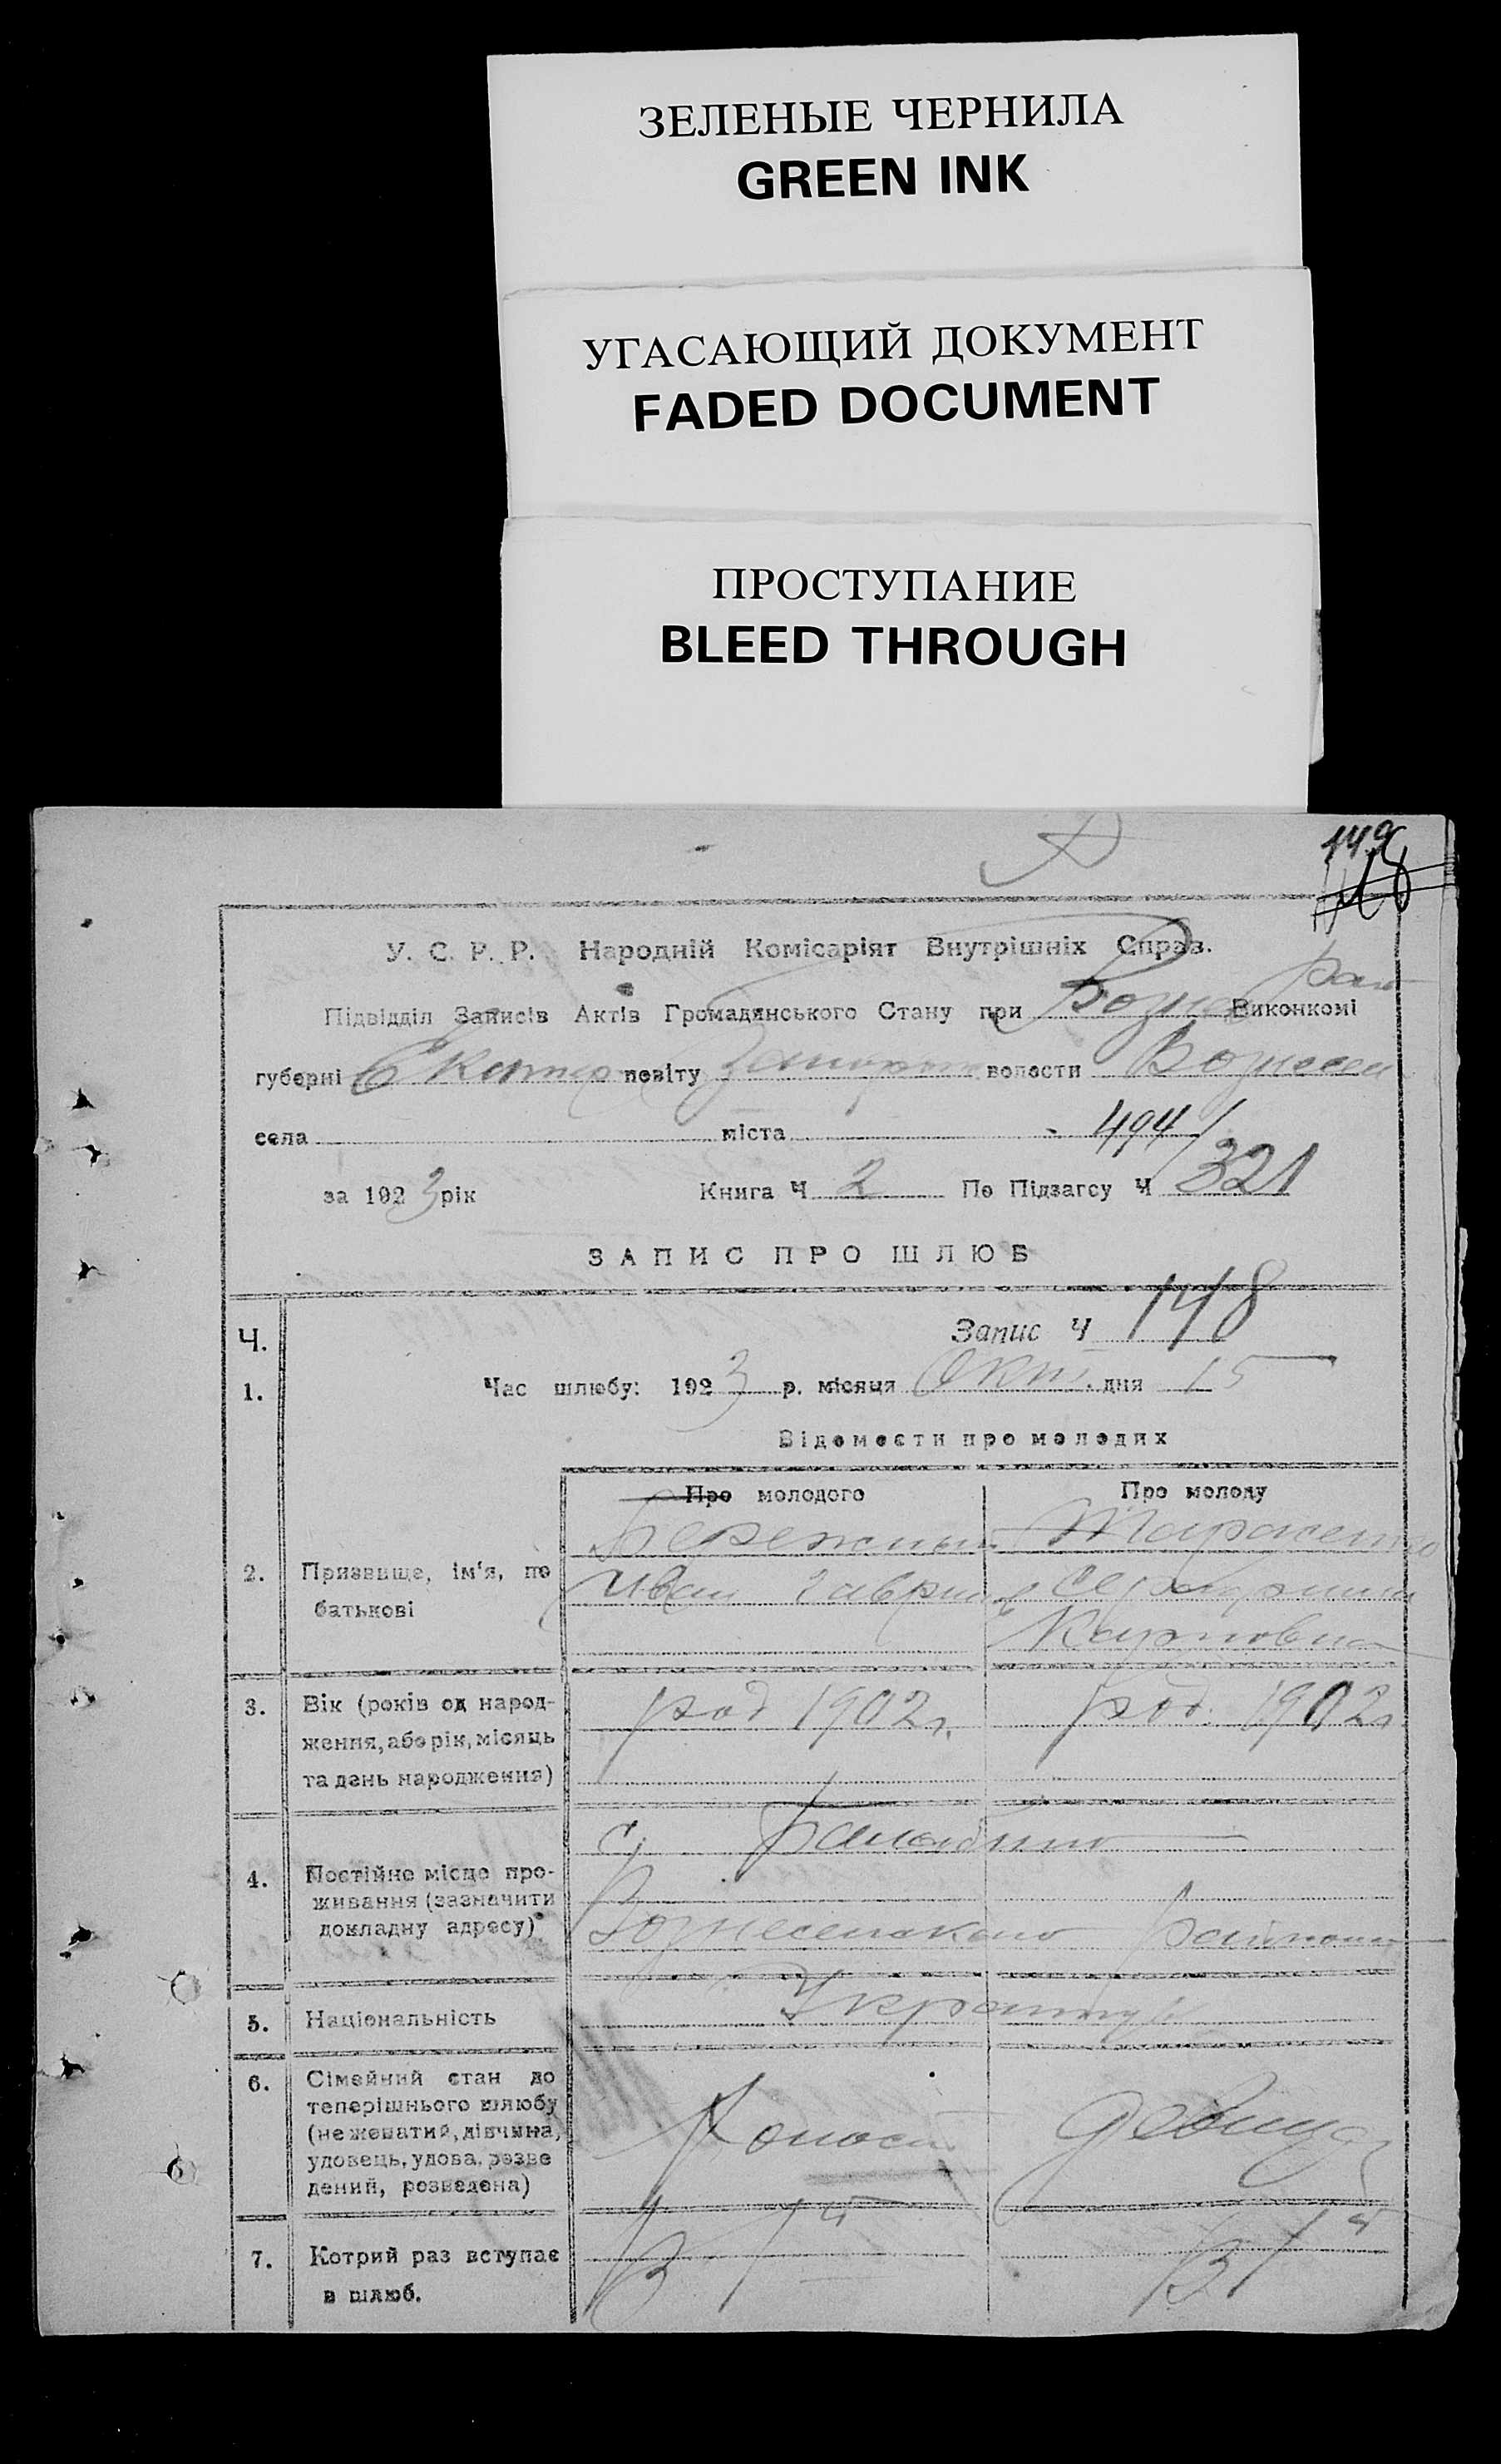 ЗЕЛЕНЫЕ ЧЕРНИЛА
GREEN INK
УГАСАЮЩИЙ ДОКУМЕНТ
FADED DOCUMENT
ПРОСТУПАНИЕ
BLEED THROUGH
149
У. С. Р. Р. Народній Комісаріят Внутрішніх Справ.
Підвідділ Записів Актів Громадянського Стану при Виконкомі
губерні Екатер повіту волости Вознесен
села міста 494/
за 1923 рік Книга Ч 2 По Підзагсу Ч 321
ЗАПИС ПРО ШЛЮБ
Ч. Запис Ч 148
1. Час шлюбу: 1923 р. місяця Окт. дня 15
Відомости про молодих
Про молодого Про молоду
Бережный Тарасенко
2. Призвище, ім'я, по Иван Гаврил
батькові Карповна
3. Вік (років од народ- род 1902 г. род. 1902 г
ження, або рік, місяць
та день народження)
с.
4. Постійне місце про-
живання (зазначити
докладну адресу) Вознесенского района
5. Національність
6. Сімейний стан до
теперішнього шлюбу
(не жонатий, дівчина, Холост девица
удовець, удова, розве
дений, розведена)
7. Котрий раз вступає в 1й в 1й
в шлюб.